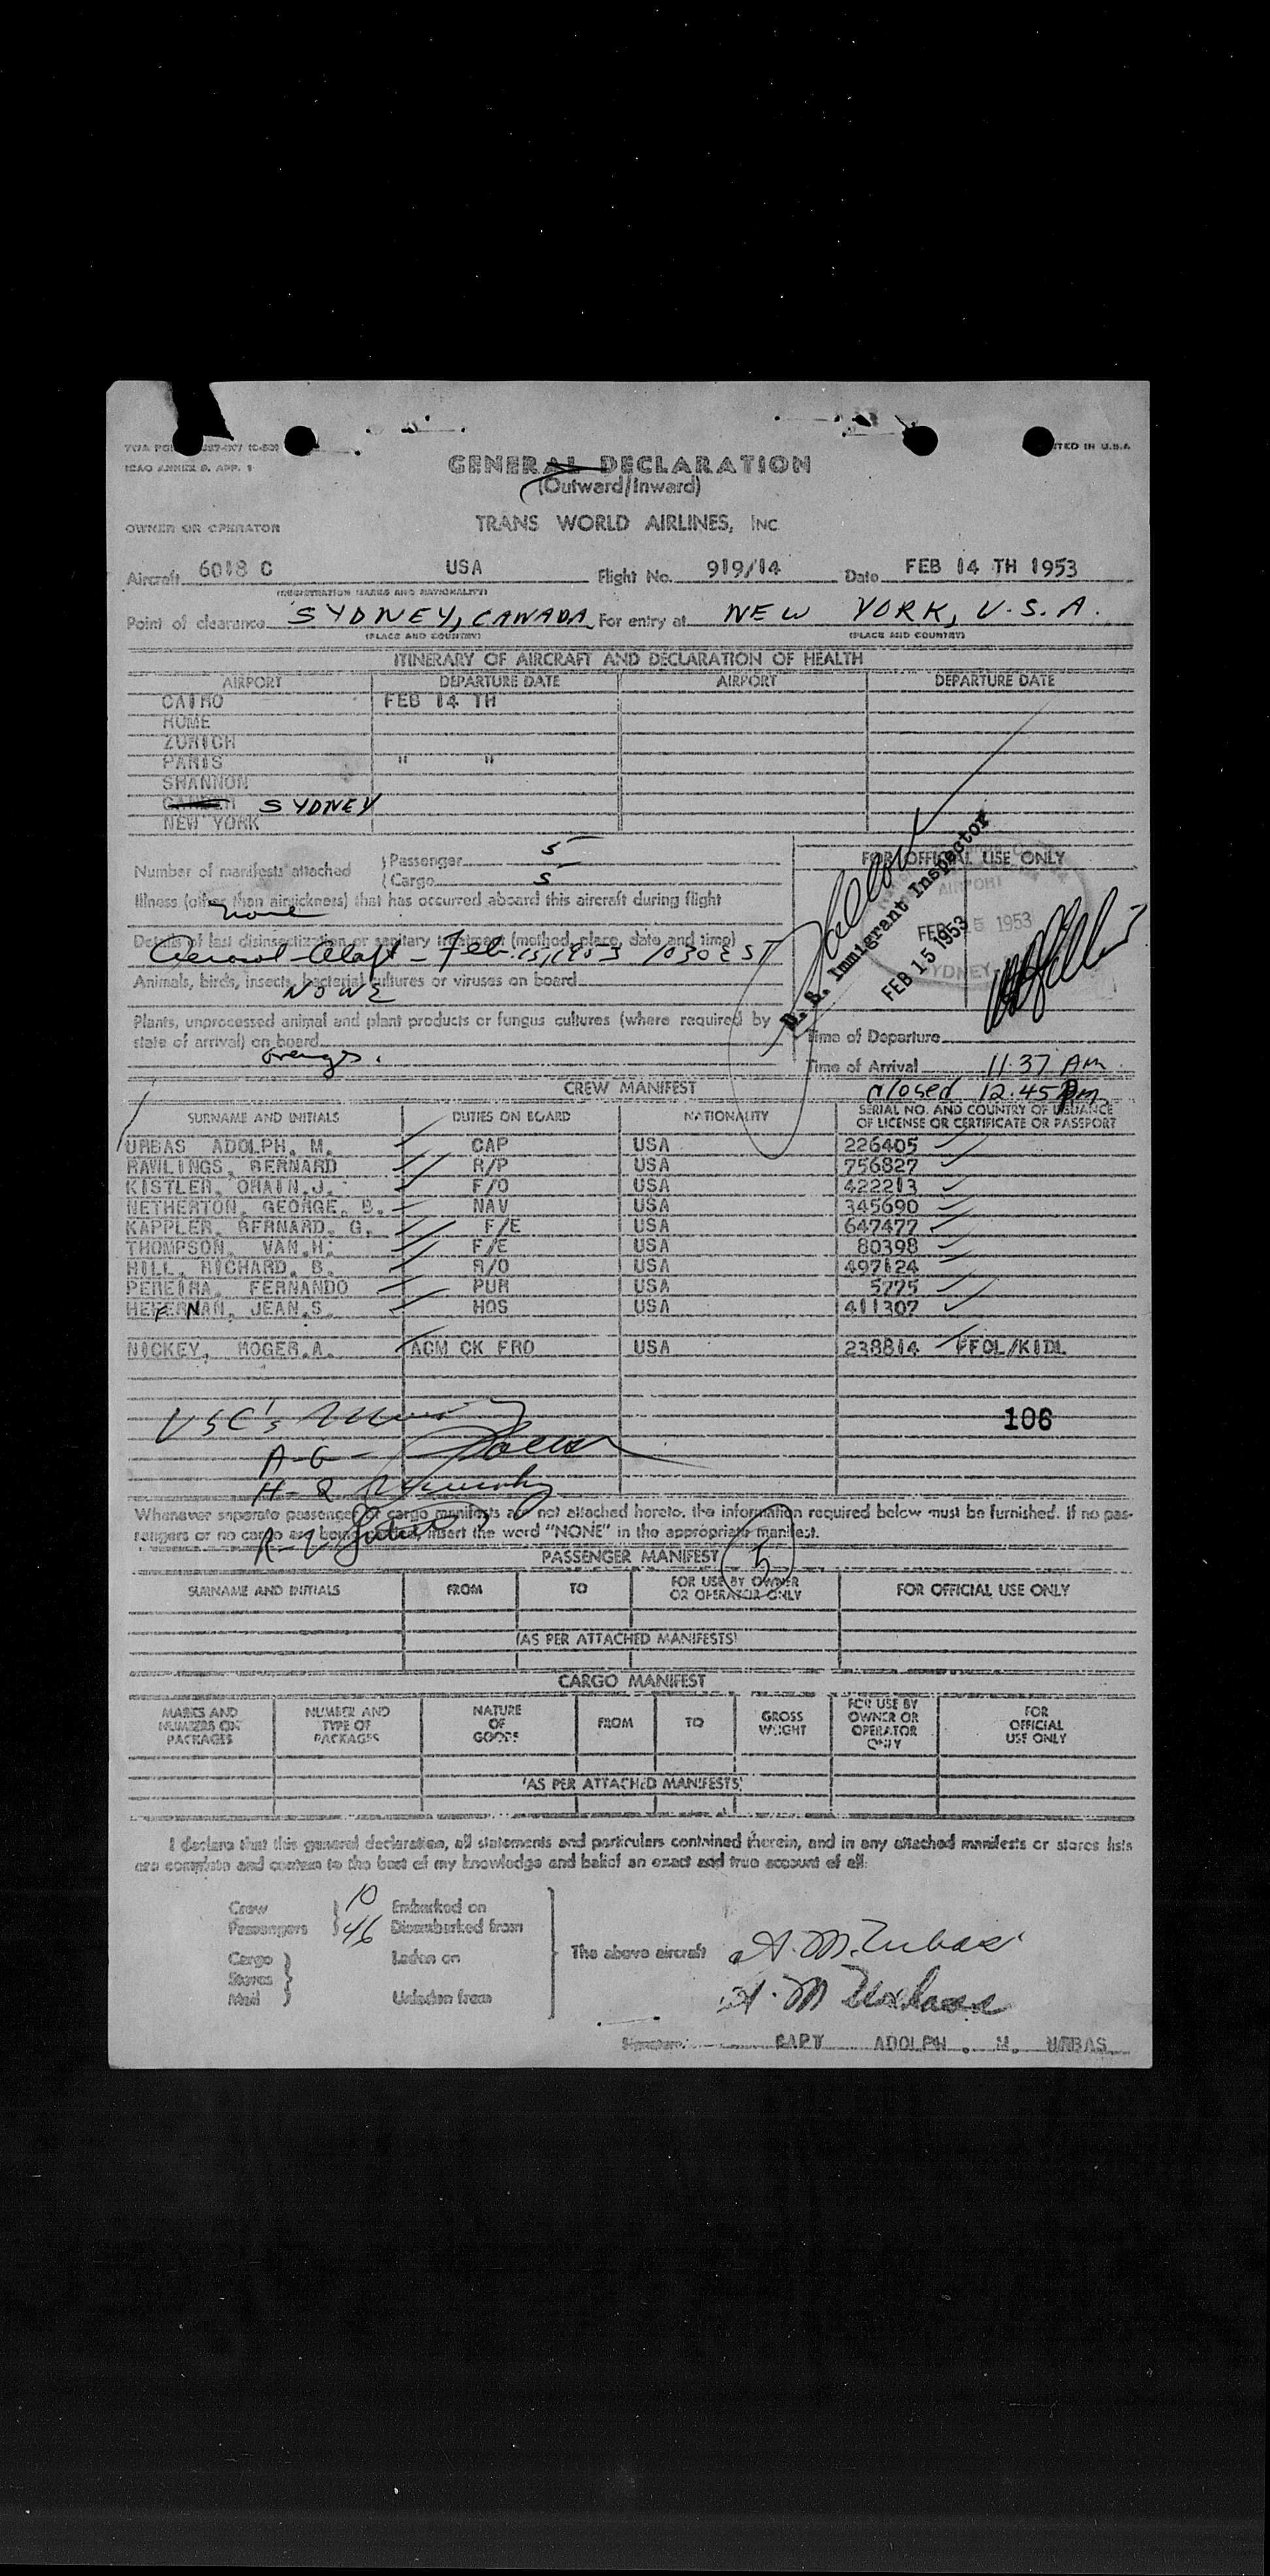 ICAO ANNEX 9. APP. 1
GENERAL DECLARATION
(Outward/Inward)
OWNER OR OPERATOR TRANS WORLD AIRLINES, INC
Aircraft 6018 C USA Flight No. 919/14 Date FEB 14 TH 1953
(REGISTRATION MARKS AND NATIONALITY)
Point of clearance SYDNEY, CANADA For entry at NEW YORK, U.S.A.
(PLACE AND COUNTRY) (PLACE AND COUNTRY)
ITINERARY OF AIRCRAFT AND DECLARATION OF HEALTH
AIRPORT DEPARTURE DATE AIRPORT DEPARTURE DATE
CAIRO FEB 14 TH
ROME
ZURICH
PARIS " "
SHANNON
SYDNEY
NEW YORK
Number of manifests attached
Passenger 5
Cargo 5
FOR OFFICIAL USE ONLY
Illness (other than airsickness) that has occurred aboard this aircraft during flight
none
Details of last disinsectization or sanitary treatment (method, place, date and time)
Aerosol - Feb. 15, 1953 1030 EST
Animals, birds, insects, bacterial cultures or viruses on board
NONE
Plants, unprocessed animal and plant products or fungus cultures (where required by
state of arrival) on board
U. S. Immigrant Inspector
FEB 15 1953
AIRPORT
FEB 15 1953
SYDNEY
Time of Departure
Time of Arrival 11:37 Am
closed 12.45 Pm
CREW MANIFEST
SURNAME AND INITIALS DUTIES ON BOARD NATIONALITY SERIAL NO. AND COUNTRY OF ISSUANCE
OF LICENSE OR CERTIFICATE OR PASSPORT
URBAS ADOLPH. M. CAP USA 226405
RAWLINGS, BERNARD R/P USA 756827
KISTLER, ORAIN.J. F/O USA 422213
NETHERTON, GEORGE. B. NAV USA 345690
KAPPLER, BERNARD. G. F/E USA 647477
THOMPSON, VAN.H. F/E USA 80398
HILL, RICHARD. B. R/O USA 497124
PEREIRA, FERNANDO PUR USA 5775
HEFERNAN, JEAN.S. HOS USA 411307
NICKEY, ROGER.A. ACM CK FRO USA 238814 FFOL/KIDL
USC's
106
A-G-
H-Q
Whenever separate passenger or cargo manifests are not attached hereto, the information required below must be furnished. If no pas-
sengers or no cargo are being carried, insert the word "NONE" in the appropriate manifest.
PASSENGER MANIFEST 5
SURNAME AND INITIALS FROM TO FOR USE BY OWNER
OR OPERATOR ONLY FOR OFFICIAL USE ONLY
(AS PER ATTACHED MANIFESTS)
CARGO MANIFEST
MARKS AND
NUMBERS ON
PACKAGES NUMBER AND
TYPE OF
PACKAGES NATURE
OF
GOODS FROM TO GROSS
WEIGHT FOR USE BY
OWNER OR
OPERATOR
ONLY FOR
OFFICIAL
USE ONLY
(AS PER ATTACHED MANIFESTS)
I declare that this general declaration, all statements and particulars contained therein, and in any attached manifests or stores lists
are complete and contain to the best of my knowledge and belief an exact and true account of all:
Crew 10 Embarked on
Passengers 46 Disembarked from
Cargo Laden on
Stores
Mail Unladen from
The above aircraft A. M. Urbas
A. M. Urbas
Signature CAPT ADOLPH . M. URBAS